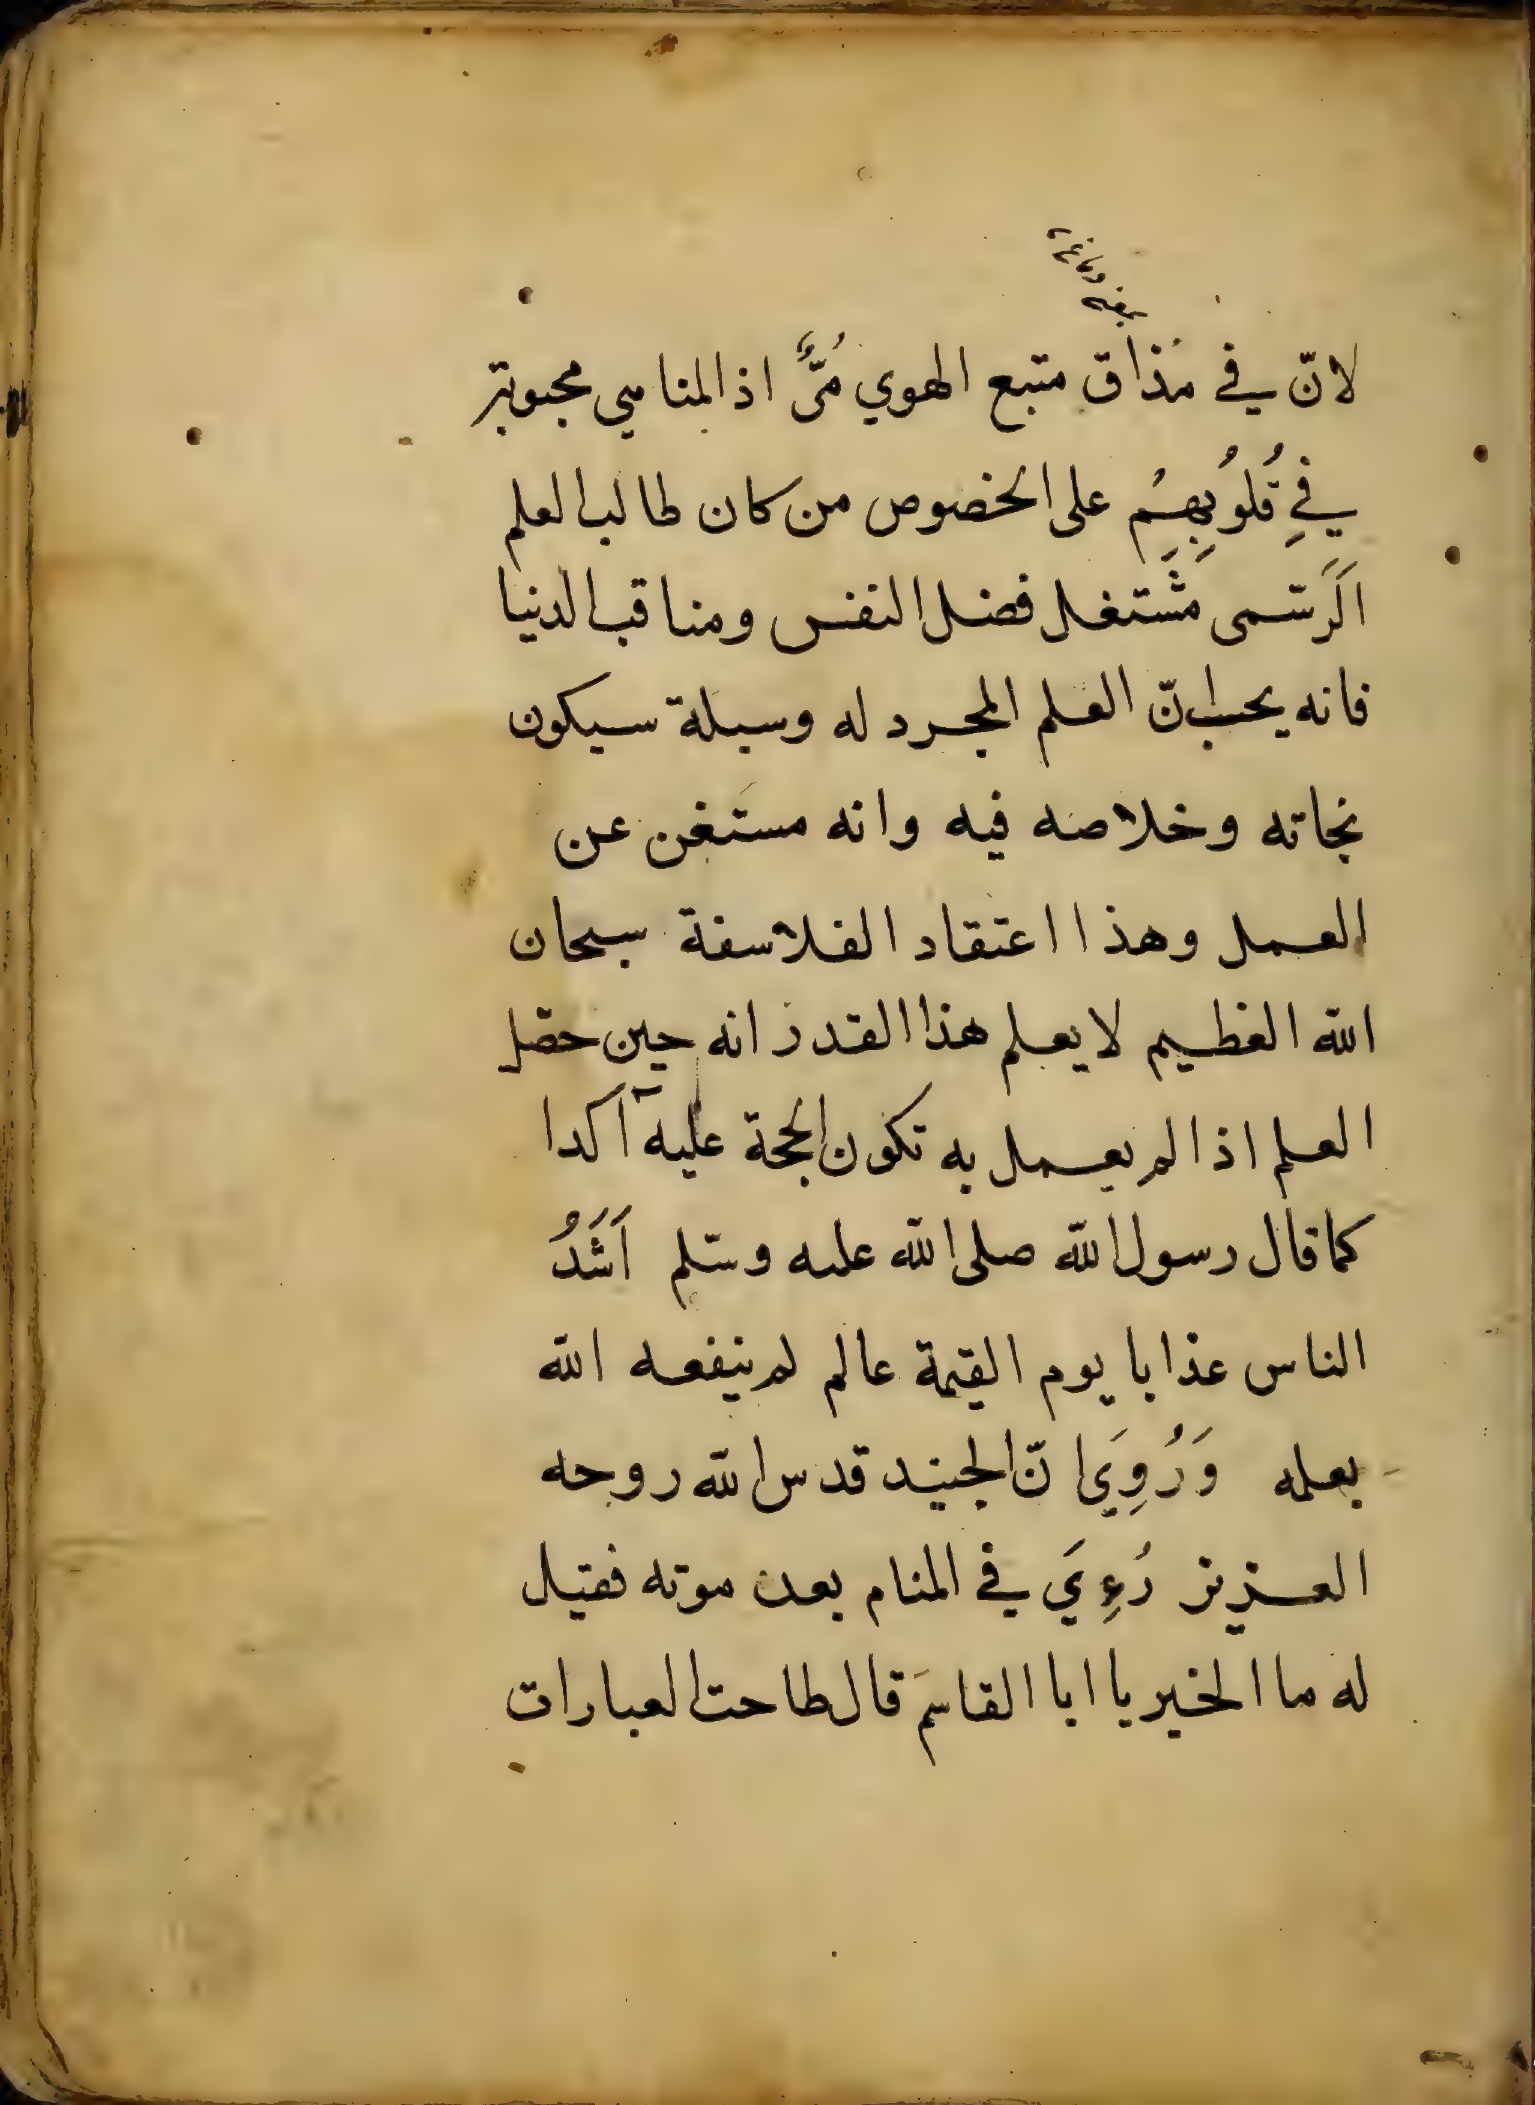 لانّ في مَذاق متبع الهوي مُرٌّ اذ المناهي محبوبة
فِي قُلُوبِهِمْ على الخصوص من كان طالب العلم
اَلرَسّمى مشَتغل فضل النفس ومناقب الدنيا
فانه يحسب انّ العلم المجرد له وسيلة سيكون
نجاته وخلاصه فيه وانه مستَغن عن
العمل وهذا اعتقاد الفلاسفة سبحان
الله العظيم لا يعلم هذا القدر انه حين حصّل
العلم اذا لم يعمل به تكون الحجة عليه آكدا
كما قال رسول الله صلى الله عليه وسّلم اَشَدُ
الناس عذابا يوم القيمة عالم لم ينفعه الله
بعلمه وَرُوِيَ انّ الجنيد قدس الله روحه
العزيز رُءِيَ في المنام بعد موته فقيل
له ما الخبر يا ابا القاسمَ قال طاحت العبارات